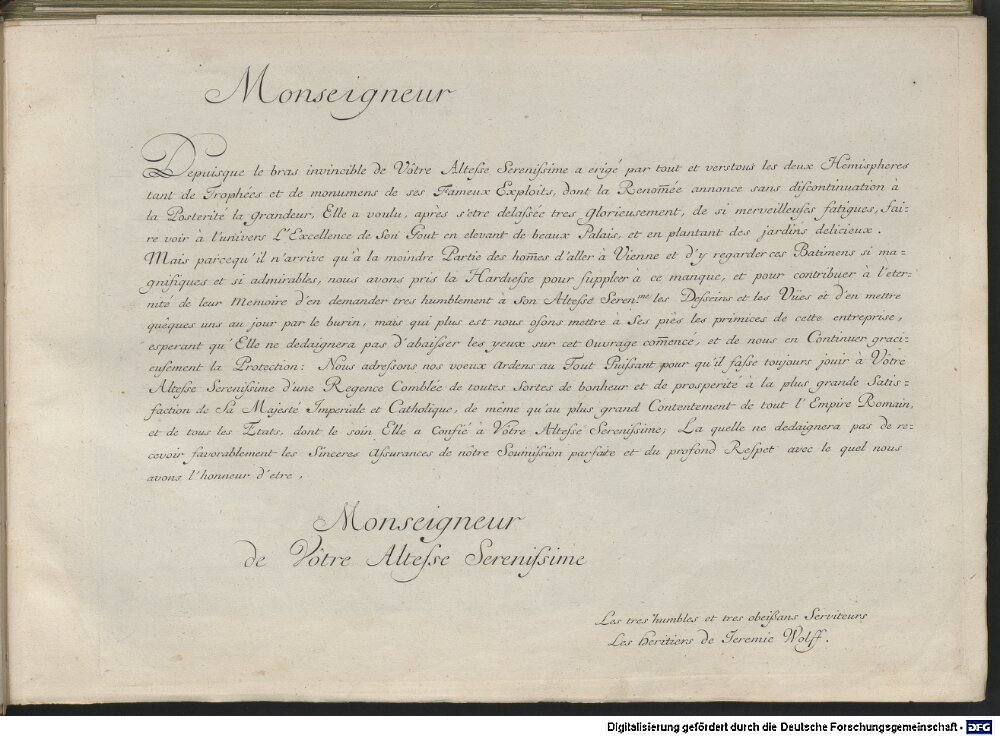 Monseigneur
Depuisque le bras invincible de Vôtre Altesse Serenissime a erigé par tout et verstous les deux Hémispheres
tant de Trophées et de monumens de ses Fameux Exploits, dont la Renom̃ée annonce sans discontinuation à
la Posterité la grandeur, Elle a voulu, après s'etre delassée tres glorieusement, de si merveilleuses fatigues, fai-
re voir à l'univers L'Excellence de Son Gout en elevant de beaux Palais, et en plantant des jardins delicieux.
Mais parcequ'il n'arrive qu'à la moindre Partie des hom̃es d'aller à Vienne et d'y regarder ces Batimens si ma-
gnifiques et si admirables, nous avons pris la Hardiesse pour suppleer à ce manque, et pour contribuer à l'eter-
nité de leur Memoire d'en demander tres humblement à Son Altesse Seren.me les Desseins et les Vües et d'en mettre
quêques uns au jour par le burin, mais qui plus est nous osons mettre à Ses piês les primices de cette entreprise,
esperant qu'Elle ne dedaignera pas d'abaisser les yeux sur cet Ouvrage com̃ence, et de nous en Continuer graci-
eusement la Protection: Nous adressons nos voeux Ardens au Tout Puissant pour qu'il fasse toujours jouir à Vôtre
Altesse Serenissime d'une Regence Comblée de toutes Sortes de bonheur et de prosperité à la plus grande Satis-
faction de Sa Majesté Imperiale et Catholique, de même qu'au plus grand Contentement de tout l'Empire Romain,
et de tous les Etats, dont le soin Elle a Confié à Vôtre Altesse Serenissime; La quelle ne dedaignera pas de re-
cevoir favorablement les Sinceres Assurances de nôtre Soumission parfaite et du profond Respet avec le quel nous
avons l'honneur d'etre,
Monseigneur
de Vôtre Altesse Serenissime
Les tres humbles et tres obeißans Serviteurs
Les heritiers de Jeremie Wolff.
Digitalisierung gefördert durch die Deutsche Forschungsgemeinschaft - DFG